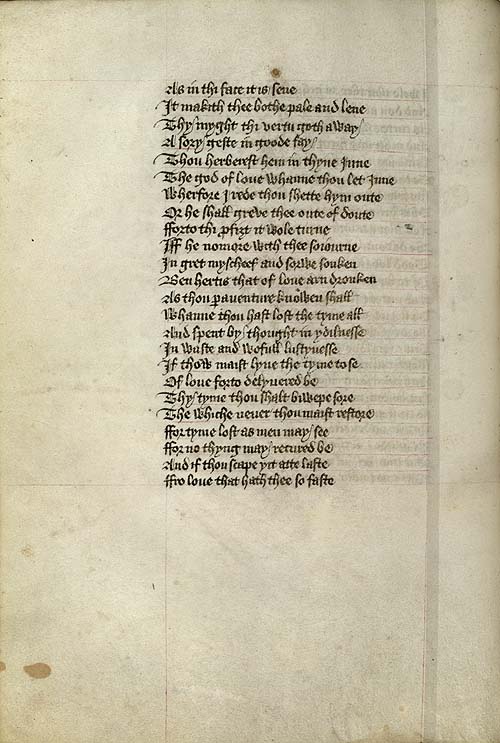 As in thi face it is sene
It makith thee bothe pale and lene
Thy myght thi vertu goth away
A sory geste in goode fay
Thou herberest hem in thyne Inne
The god of love whanne thou let Inne
Wherfore I rede thou shette hym oute
Or he shall greve thee oute of doute
fforto thi profirt it wole turne
Iff he nomore with thee soiourne
In gret myscheef and sorwe sonken
Ben hertis that of love arn dronken
As thou peraventure knowen shall
Whanne thou hast lost the tyme all
And spent by thought in ydilnesse
In waste and wofull lustynesse
If thow maist lyve the tyme to se
Of love forto delyvered be
Thy tyme thou shalt biwepe sore
The whiche never thou maist restore
ffor tyme lost as men may see
ffor no thyng may recured be
And if thou scape yit atte laste
ffro love that hath thee so faste